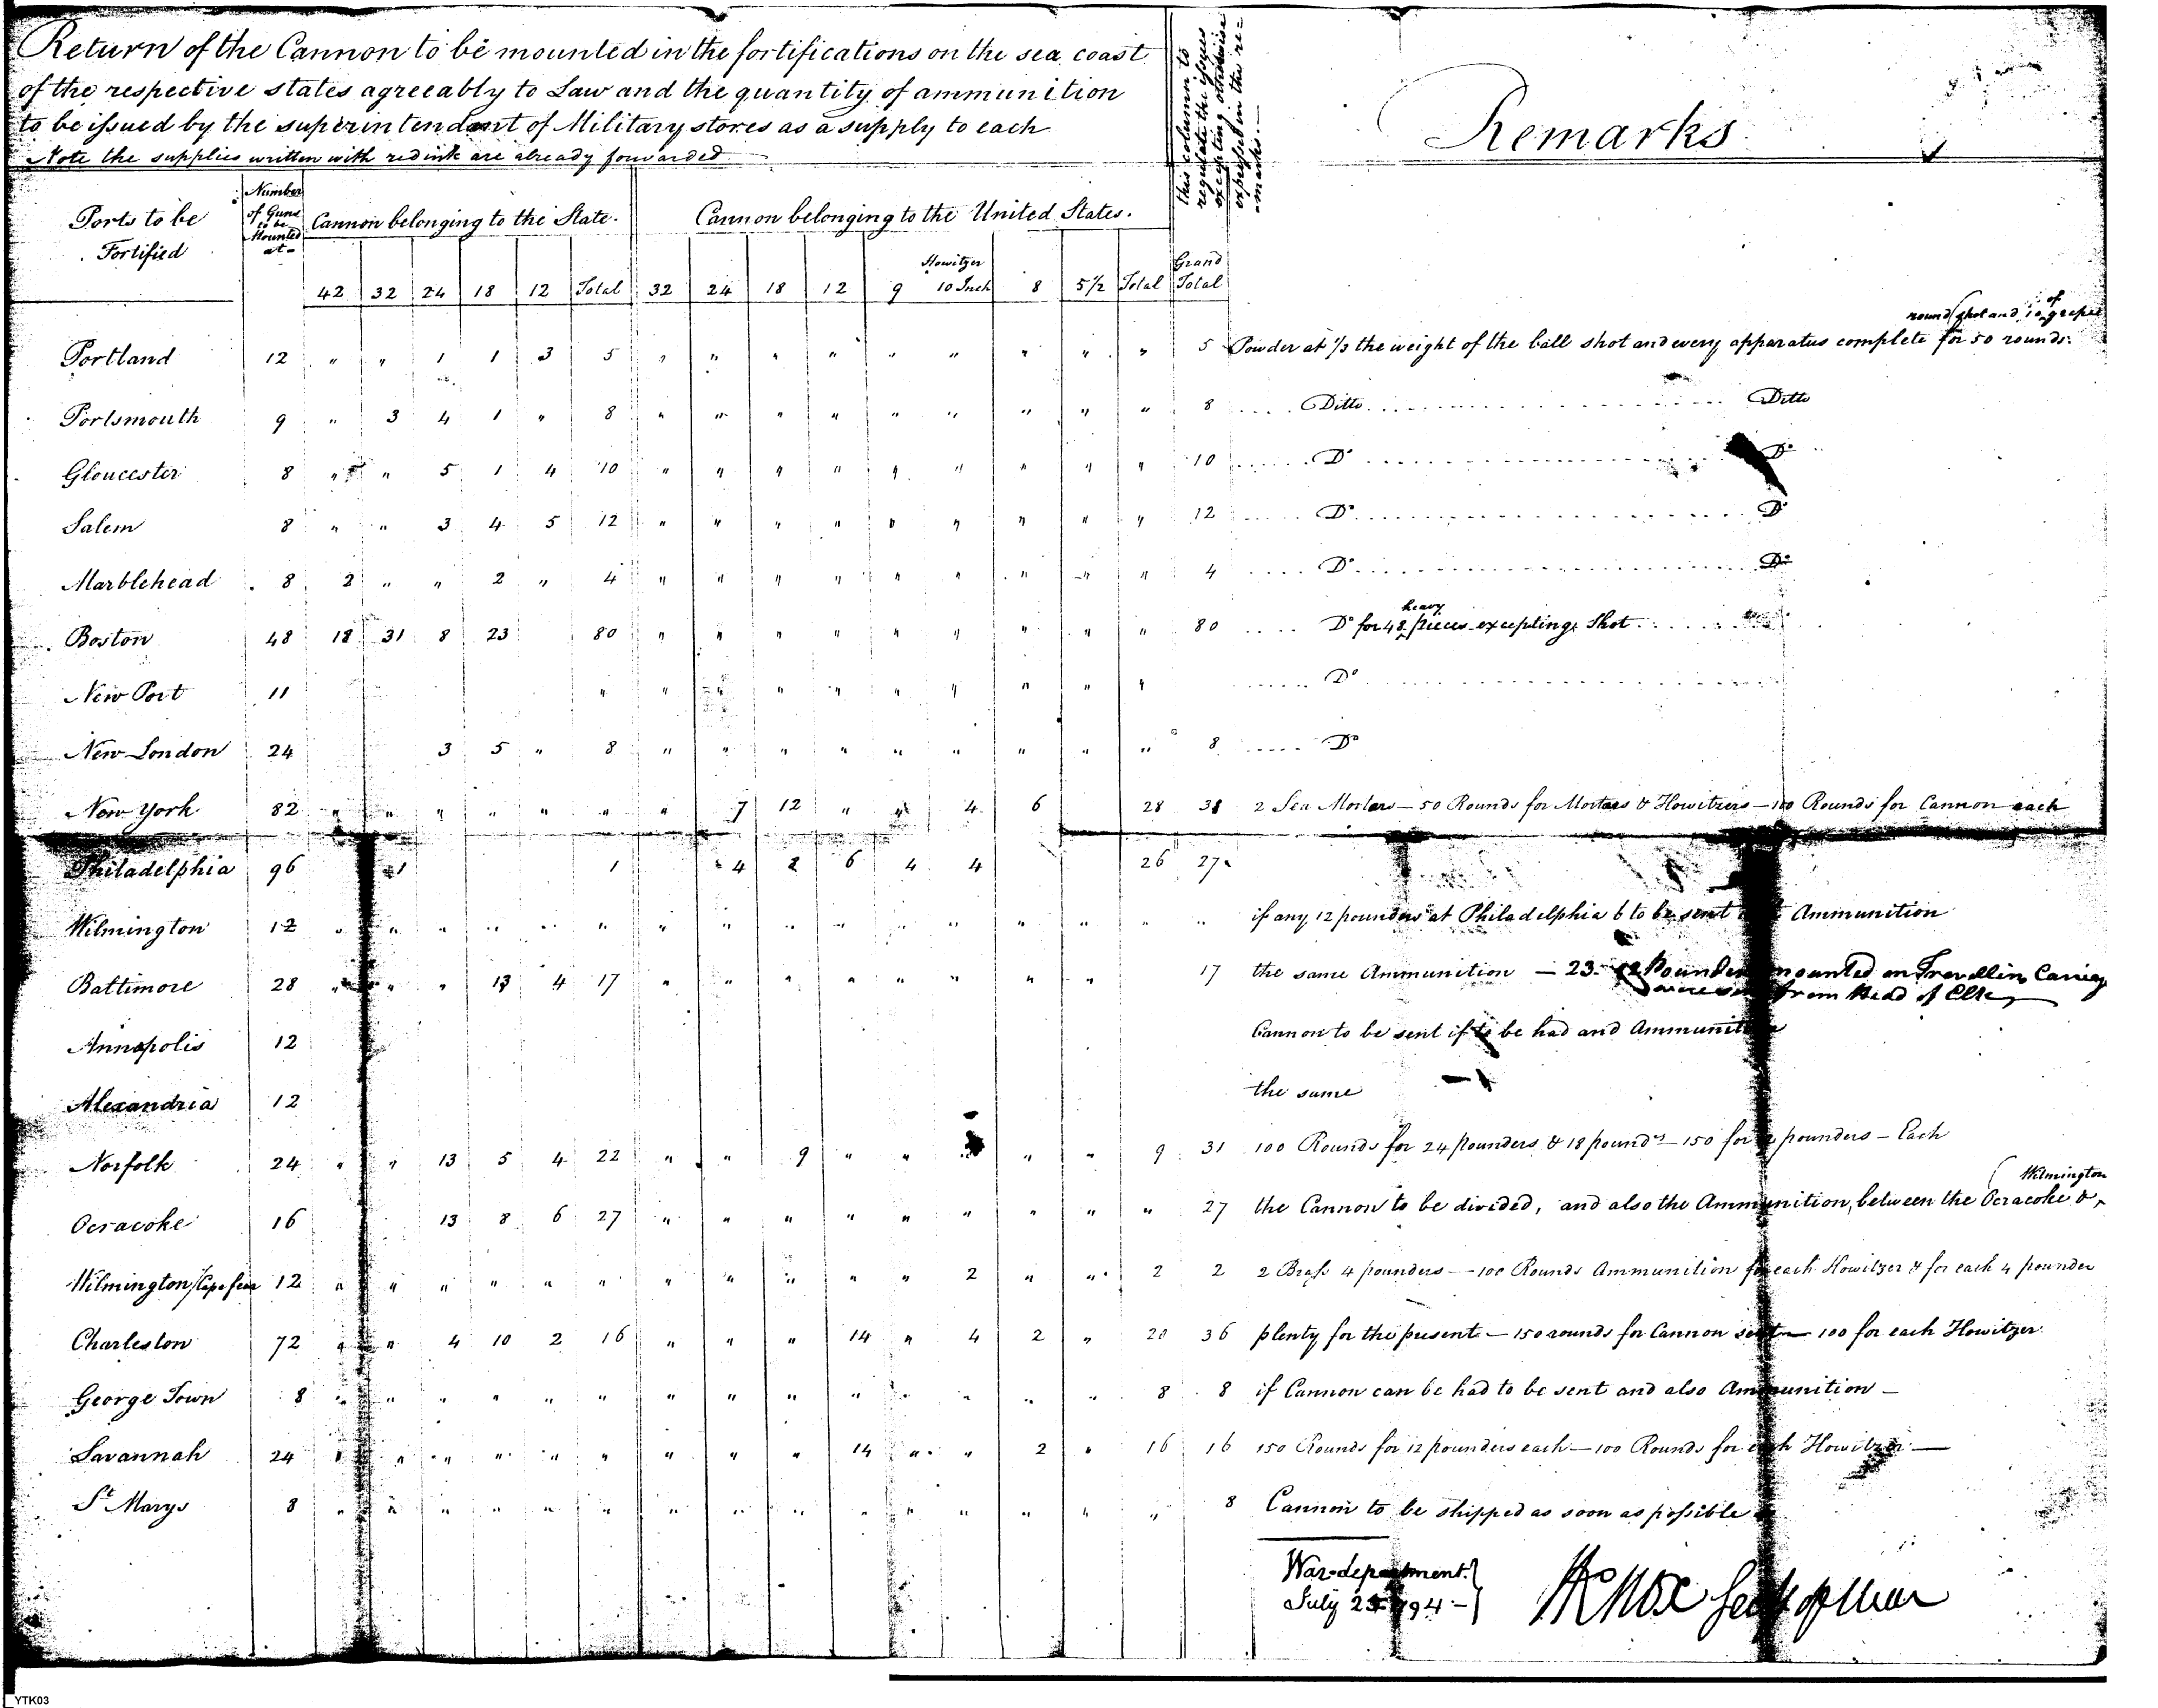 Return of the Cannon to be mounted in the fortifications on the sea coast
of the respective states agreeably to Law and the quantity of ammunition
to be issued by the superintendant of Military stores as a supply to each
Note the supplies written with red ink are already forwarded
this column to
regulate the issues
excepting otherwise
expressed in the re-
marks.—
Remarks
Ports to be
Fortified
Number
of Guns
to be
Mounted
at
Cannon belonging to the State.
Cannon belonging to the United States.
42 32 24 18 12 Total 32 24 18 12 9 Howitzer 10 Inch 8 5½ Total Grand Total
round shot and 10 of grape
Portland 12 " " 1 1 3 5 " " " " " " " " " 5 Powder at ⅓ the weight of the ball shot and every apparatus complete for 50 rounds.
Portsmouth 9 " 3 4 1 " 8 " " " " " " " " " 8 Ditto Ditto
Gloucester 8 " " 5 1 4 10 " " " " " " " " " 10 Do Do
Salem 8 " " 3 4 5 12 " " " " " " " " " 12 Do Do
Marblehead 8 2 " " 2 " 4 " " " " " " " " " 4 Do Do
Boston 48 18 31 8 23 80 " " " " " " " " " 80 Do for 48 heavy pieces excepting Shot
New Port 11 " " " " " " " " " Do
New London 24 3 5 " 8 " " " " " " " " " 8 Do
New York 82 " " " " " " " 7 12 " " 4 6 28 38 2 Sea Mortars — 50 Rounds for Mortars & Howitzers — 100 Rounds for Cannon each
Philadelphia 96 1 1 4 2 6 4 4 26 27
Wilmington 12 " " " " " " " " " " " " " " " " if any 12 pounders at Philadelphia 6 to be sent Ammunition
Baltimore 28 " " " 13 4 17 " " " " " " " " 17 the same Ammunition — 23. 12 Pounders mounted on Travellin Carriag
from Head of Elk
Annapolis 12 Cannon to be sent if to be had and Ammunition
Alexandria 12 the same
Norfolk 24 " " 13 5 4 22 " " 9 " " " " 9 31 100 Rounds for 24 pounders & 18 pounds — 150 for pounders — Each
Ocracoke 16 13 8 6 27 " " " " " " " " " 27 the Cannon to be divided, and also the Ammunition, between the Ocracoke & Wilmington
Wilmington/Cape fear 12 " " " " " " " " " " " 2 " " 2 2 2 Brass 4 pounders — 100 Rounds Ammunition for each Howitzer & for each 4 pounder
Charleston 72 " " 4 10 2 16 " " " 14 " 4 2 " 20 36 plenty for the present — 150 rounds for Cannon sent — 100 for each Howitzer
George Town 8 " " " " " " " " " " " " " " 8 8 if Cannon can be had to be sent and also Ammunition —
Savannah 24 " " " " " " " " " 14 " " 2 " 16 16 150 Rounds for 12 pounders each — 100 Rounds for each Howitzer —
St Marys 8 " " " " " " " " " " " " " " " 8 Cannon to be shipped as soon as possible
War department.
July 1794
HKnox Secy of War
YTK03